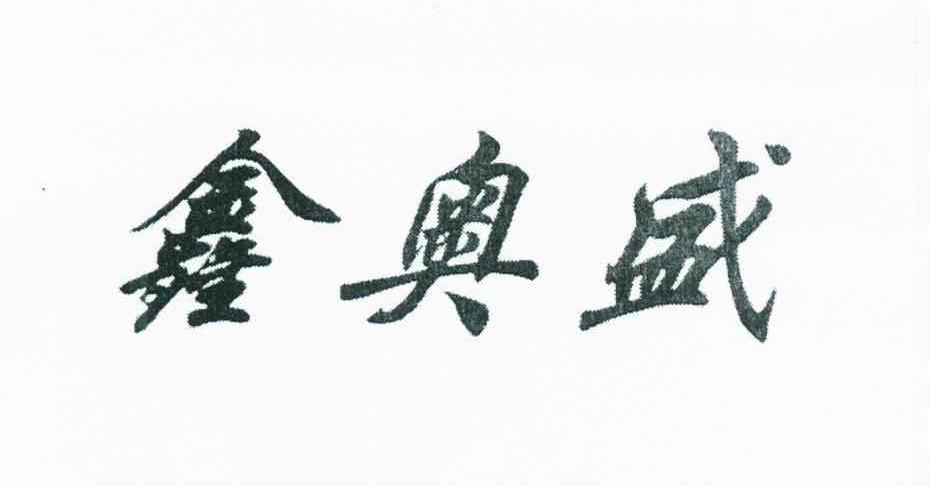 鑫奥盛